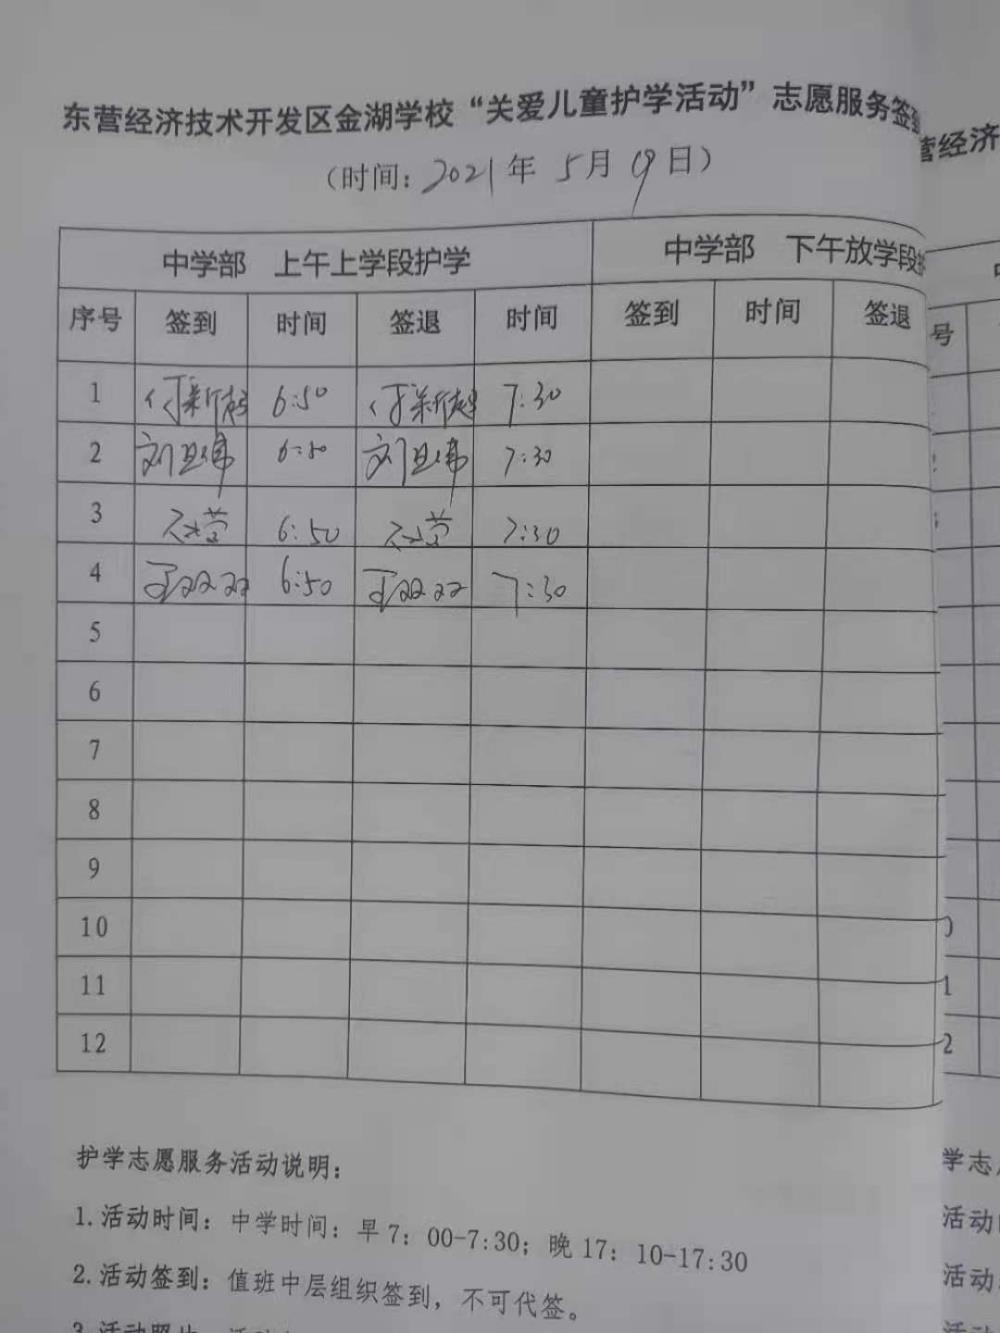 东营经济技术开发区金湖学校“关爱儿童护学活动”志愿服务签
（时间：2021年 5月 19日）
中学部 上午上学段护学 中学部 下午放学段
序号 签到 时间 签退 时间 签到 时间 签退
1 付新超 6:50 付新超 7:30
2 刘卫伟 6:50 刘卫伟 7:30
3 6:50 7:30
4 王双双 6:50 王双双 7:30
5
6
7
8
9
10
11
12
护学志愿服务活动说明：
1.活动时间：中学时间：早7：00-7:30；晚17：10-17:30
2.活动签到：值班中层组织签到，不可代签。
营经济
号
学志
活动
活动